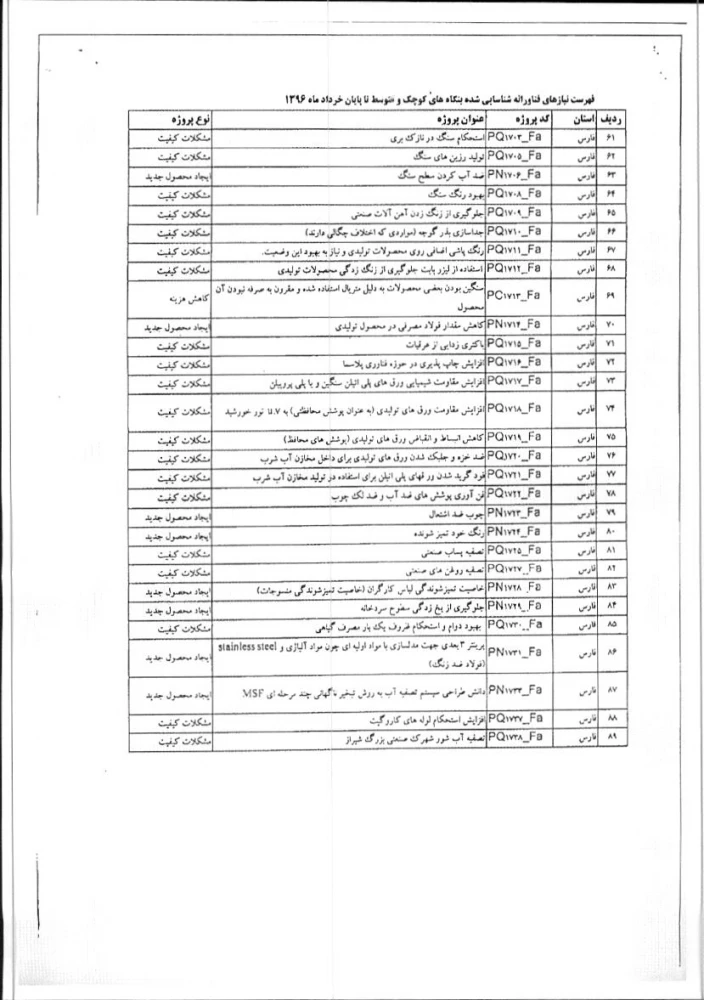 فهرست نیازهای فناورانه شناسایی شده بنگاه های کوچک و متوسط تا پایان خرداد ماه ۱۳۹۶
ردیف استان کد پروژه عنوان پروژه نوع پروژه
۶۱ فارس PQ۱۷۰۳_Fa استحکام سنگ در نازک بری مشکلات کیفیت
۶۲ فارس PQ۱۷۰۵_Fa تولید رزین های سنگ مشکلات کیفیت
۶۳ فارس PN۱۷۰۶_Fa ضد آب کردن سطح سنگ ایجاد محصول جدید
۶۴ فارس PQ۱۷۰۸_Fa بهبود رنگ سنگ مشکلات کیفیت
۶۵ فارس PQ۱۷۰۹_Fa جلوگیری از زنگ زدن آهن آلات صنعتی مشکلات کیفیت
۶۶ فارس PQ۱۷۱۰_Fa جداسازی بذر گوجه (مواردی که اختلاف چگالی دارند) مشکلات کیفیت
۶۷ فارس PQ۱۷۱۱_Fa رنگ پاشی اضافی روی محصولات تولیدی و نیاز به بهبود این وضعیت. مشکلات کیفیت
۶۸ فارس PQ۱۷۱۲_Fa استفاده از لیزر بابت جلوگیری از زنگ زدگی محصولات تولیدی مشکلات کیفیت
۶۹ فارس PC۱۷۱۳_Fa سنگین بودن بعضی محصولات به دلیل متریال استفاده شده و مقرون به صرفه نبودن آن کاهش هزینه
محصول
۷۰ فارس PN۱۷۱۴_Fa کاهش مقدار فولاد مصرفی در محصول تولیدی ایجاد محصول جدید
۷۱ فارس PQ۱۷۱۵_Fa باکتری زدایی از عرقیات مشکلات کیفیت
۷۲ فارس PQ۱۷۱۶_Fa افزایش چاپ پذیری در حوزه فناوری پلاسما مشکلات کیفیت
۷۳ فارس PQ۱۷۱۷_Fa افزایش مقاومت شیمیایی ورق های پلی اتیلن سنگین و یا پلی پروپیلن مشکلات کیفیت
۷۴ فارس PQ۱۷۱۸_Fa افزایش مقاومت ورق های تولیدی (به عنوان پوشش محافظتی) به u.v نور خورشید مشکلات کیفیت
۷۵ فارس PQ۱۷۱۹_Fa کاهش انبساط و انقباض ورق های تولیدی (پوشش های محافظ) مشکلات کیفیت
۷۶ فارس PQ۱۷۲۰_Fa ضد خزه و جلبک شدن ورق های تولیدی برای داخل مخازن آب شرب مشکلات کیفیت
۷۷ فارس PQ۱۷۲۱_Fa فود گرید شدن ورقهای پلی اتیلن برای استفاده در تولید مخازن آب شرب مشکلات کیفیت
۷۸ فارس PQ۱۷۲۲_Fa فن آوری پوشش های ضد آب و ضد لک چوب مشکلات کیفیت
۷۹ فارس PN۱۷۲۳_Fa چوب ضد اشتعال ایجاد محصول جدید
۸۰ فارس PN۱۷۲۴_Fa رنگ خود تمیز شونده ایجاد محصول جدید
۸۱ فارس PQ۱۷۲۵_Fa تصفیه پساب صنعتی مشکلات کیفیت
۸۲ فارس PQ۱۷۲۷_Fa تصفیه روغن های صنعتی مشکلات کیفیت
۸۳ فارس PN۱۷۲۸_Fa خاصیت تمیزشوندگی لباس کارگران (خاصیت تمیزشوندگی منسوجات) ایجاد محصول جدید
۸۴ فارس PN۱۷۲۹_Fa جلوگیری از یخ زدگی سطوح سردخانه ایجاد محصول جدید
۸۵ فارس PQ۱۷۳۰_Fa بهبود دوام و استحکام ظروف یک بار مصرف گیاهی مشکلات کیفیت
۸۶ فارس PN۱۷۳۱_Fa پرینتر ۳بعدی جهت مدلسازی با مواد اولیه ای چون مواد آلیاژی و stainless steel ایجاد محصول جدید
(فولاد ضد زنگ)
۸۷ فارس PN۱۷۳۴_Fa دانش طراحی سیستم تصفیه آب به روش تبخیر ناگهانی چند مرحله ای MSF ایجاد محصول جدید
۸۸ فارس PQ۱۷۳۷_Fa افزایش استحکام لوله های کاروگیت مشکلات کیفیت
۸۹ فارس PQ۱۷۳۸_Fa تصفیه آب شور شهرک صنعتی بزرگ شیراز مشکلات کیفیت